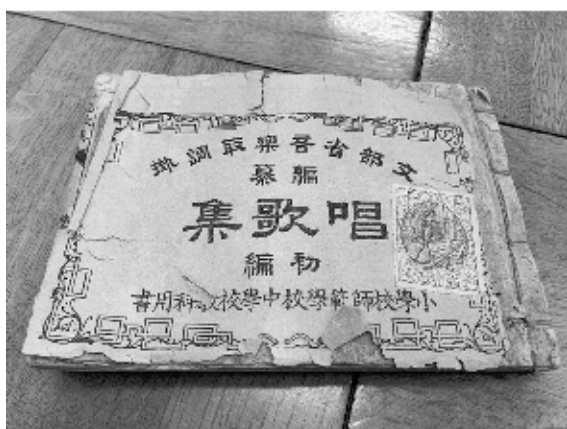 文部省音樂取調掛
編纂
唱歌集
初編
小學校師範學校中學校教科用書